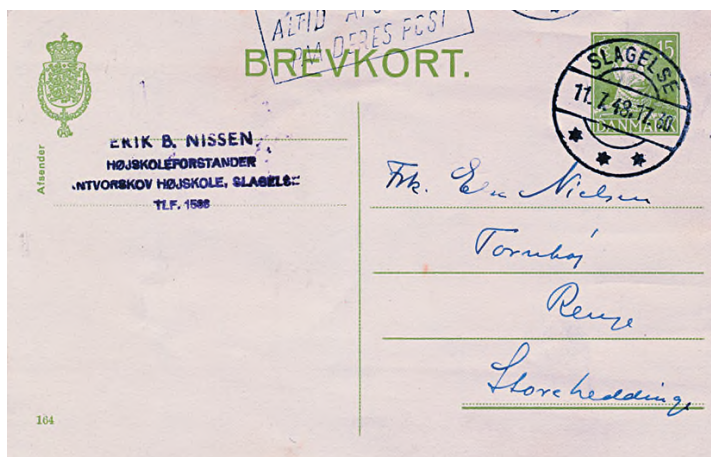 ALTID
PAA DERES POST
BREVKORT.
15
DANMARK
SLAGELSE
11. 7. 48. 17.30
Afsender
ERIK B. NISSEN
HØJSKOLEFORSTANDER
NTVORSKOV HØJSKOLE, SLAGELSE
TLF. 1588
Frk. Nielsen
Tornhøj
Storeheddinge
164